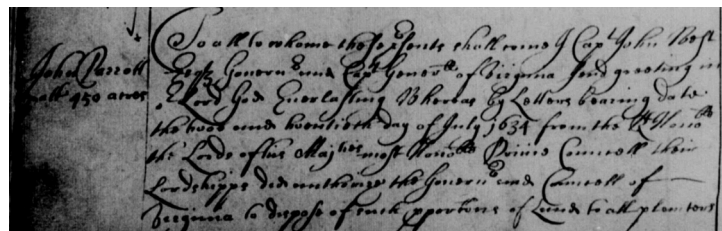 To all to whome these psents shall come I Capt John West
John Parrott
Esqr Governr and Capt Generll of Virginia send greeting in
patt 450 acres
Lord God Everlasting Whereas by Letters bearing date
the twoe and twentieth day of July 1634 from the Rt Honoble
the Lords of his Majties most Honoble Privie Councell their
Lordshipps did authorize the Governr and Councell of
Virginia to dispose of such pportons of Land to all planters